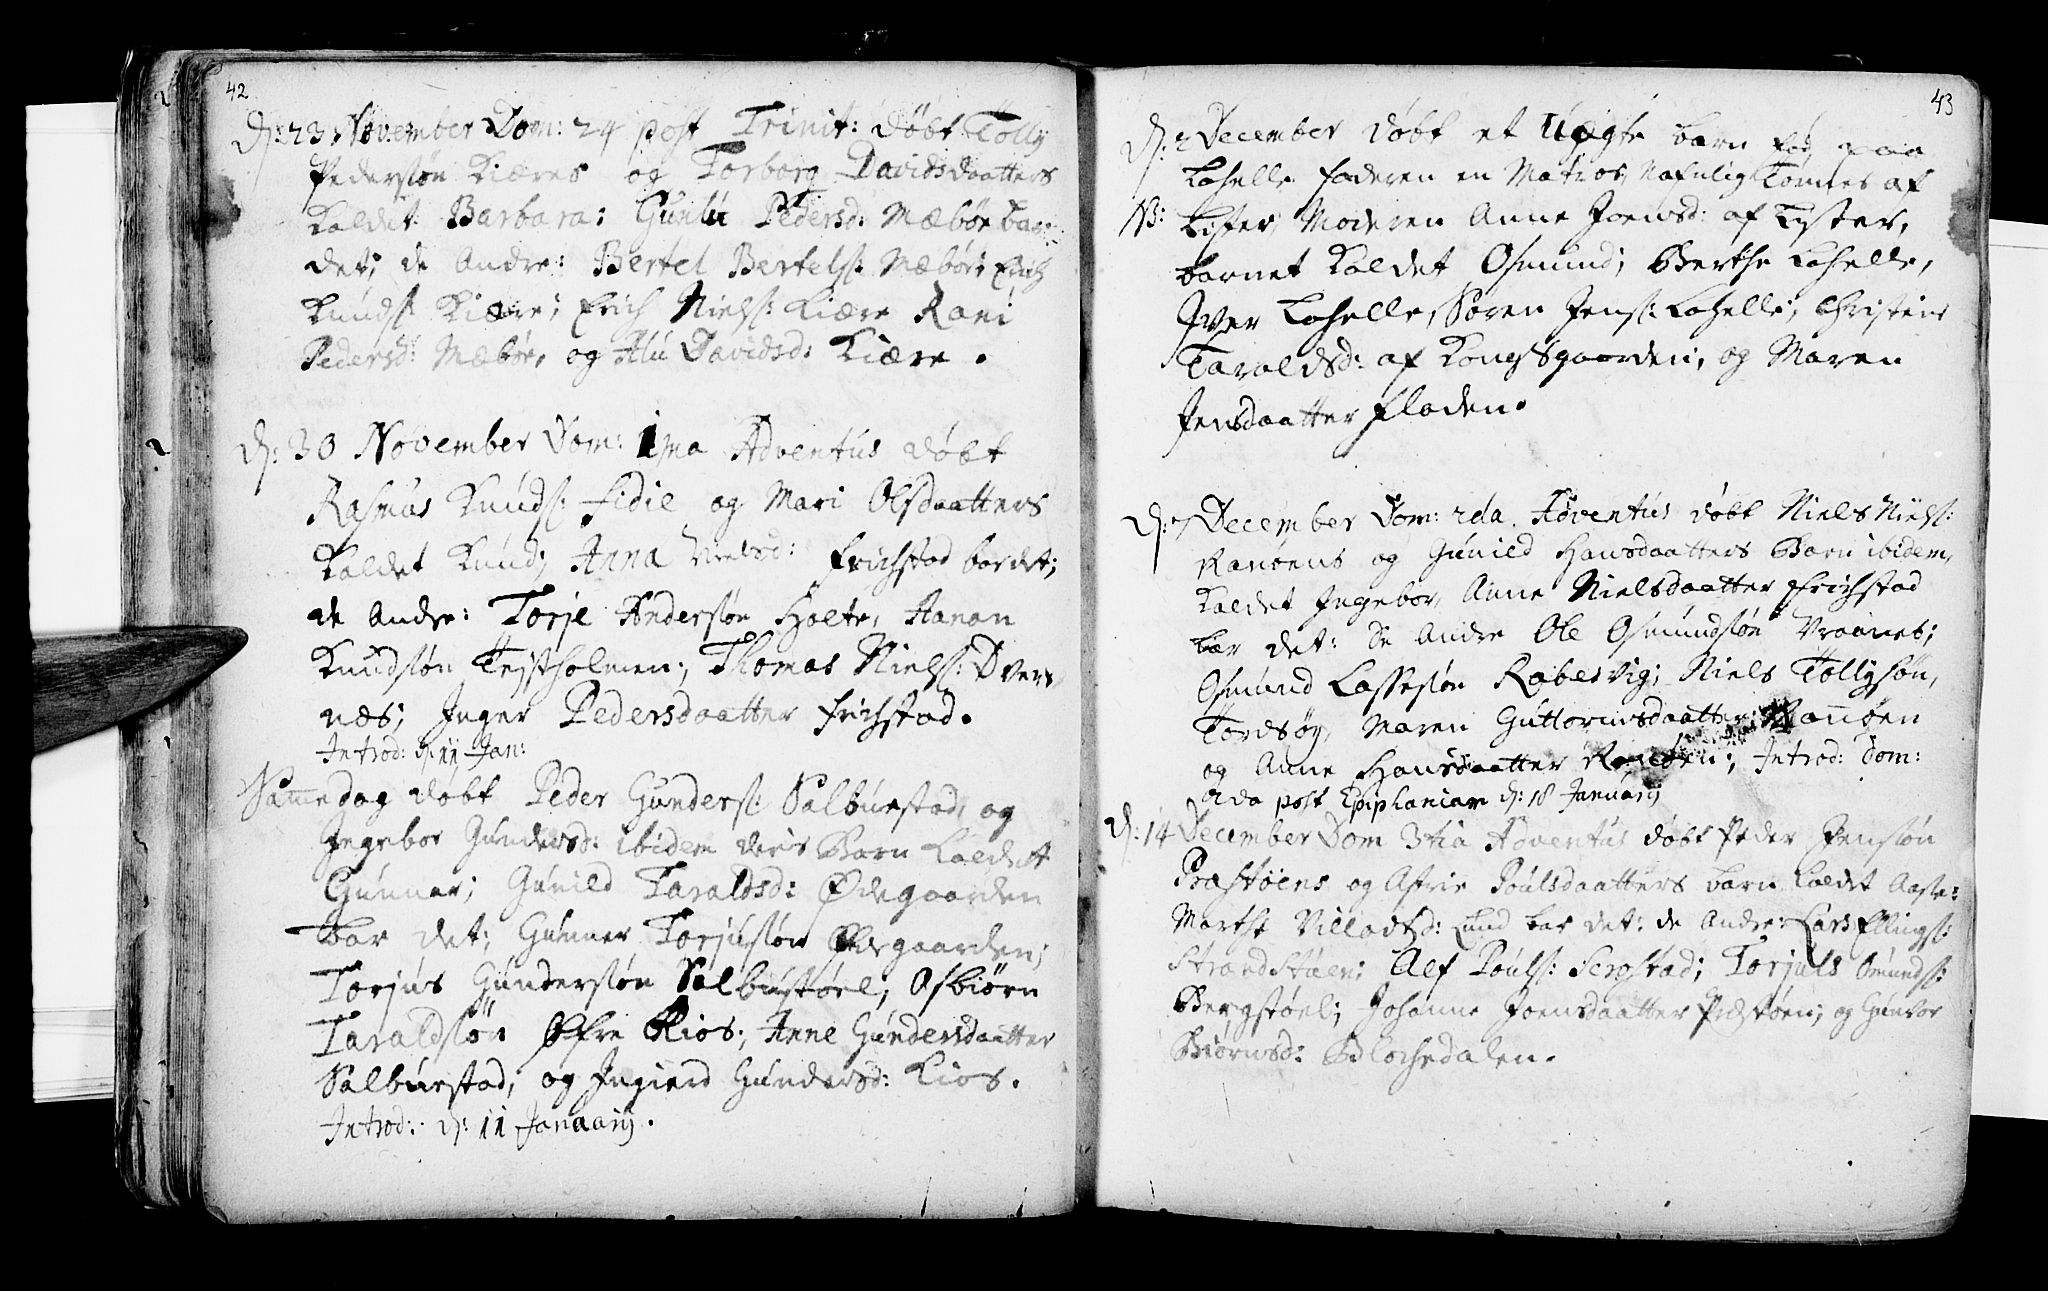 42
D: 23 November Dom: 24 post Trinit: døbt Tolly
Pedersøn Kiæres og Torborg Davidsdaatters
Kaldet Barbara: Gunlu Pedersd: Mæbøe bar
det; de Andre: Bertel Bertels: Mæbøe; Erich
Knuds: Kiære; Erich Niels: Kiære Rani
Pedersd: Mæbøe, og Alu Davidsd: Kiære.
D: 30 November Dom: 1ma Adventus døbt
Rasmus Knuds: Fidie og Mari Olsdaatters
Kaldet Knud; Anna Nielsd: Erichstad bar det;
de Andre: Torje Andersøn Holte, Aanon
Knudsøn Tejstholmen; Thomas Niels: Dver-
næs; Inger Pedersdaatter Erichstad.
Introd: d. 11 Jan:
Samme dag døbt Peder Gunders: Salbuestad, og
Ingebor Gundersd: ibidem deris Barn Kaldet
Gunner; Gunild Taraldsd: Ødegaarden
bar det; Gunner Torjusøn Ødegaarden;
Torjus Gundersøn Salbustøel; Osbiørn
Taraldsøn Øfre Kios; Anne Gundersdaatter
Salbuestad; og Ingierd Gundersd: Kios.
Introd: d: 11 Januarij.
43
D: 2 December døbt et Uægte barn fød paa
Lahelle Faderen en Matros Nafnlig Tønnes af
NB: Lister, Moderen Anne Joensd: af Lyster,
barnet Kaldet Osmund; Berthe Lahelle,
Iver Lahelle, Søren Jens: Lahelle; Christens
Taraldsd: af Kongsgaarden, og Maren
Jensdaatter Fladen.
D: 7 December Dom: 2da Adventus døbt Niels Niels:
Ranøens og Gunild Hansdaatters Barn ibidem,
Kaldet Ingebor, Anne Nielsdaatter Erichstad
bar det: De Andre Ole Osmundsøn Vraanes;
Osmund Lassesøn Rabesvig; Niels Tollysøn,
Tordsøy, Maren Guttormsdaatter Ranøen
og Anne Hansdaatter Ranøen; Introd: Dom:
2da post Epiphaniam d: 18 Januarij
D: 14 December Dom 3tia Adventus døbt Peder Jensøn
Præstøens og Astrie Poulsdaatters barn Kaldet Aaste:
Marthe Villadsd: Lund bar det: de Andre: Lars Ellings:
Strandstuen; Alf Pouls: Serestad; Torjuls Omunds:
Bergstøel; Johanne Joensdaatter Præstøen; og Gunvor
Biørnsd: Blochedalen.